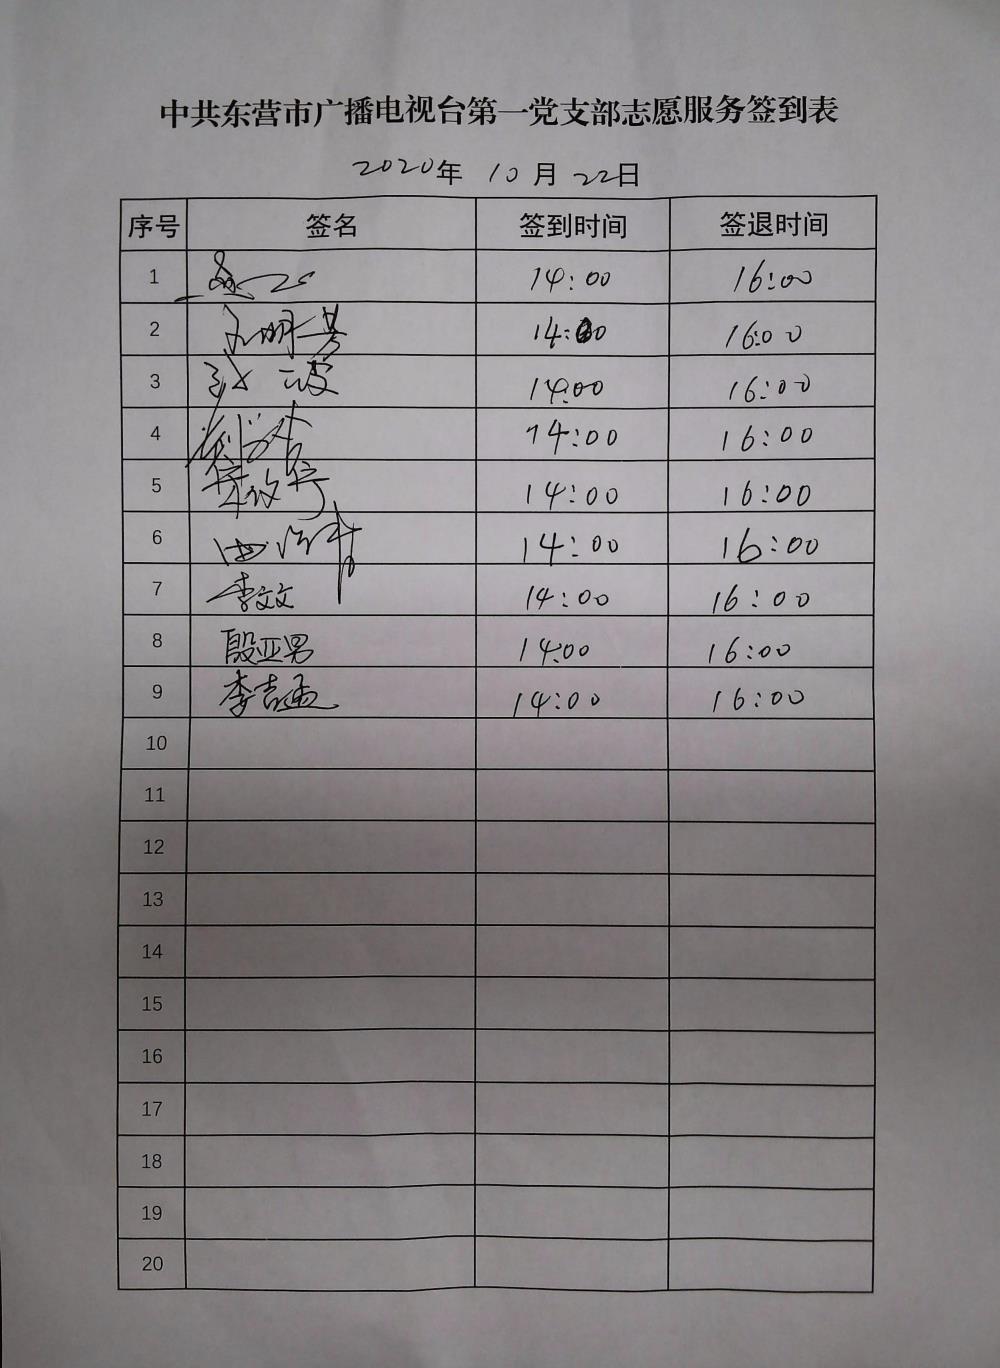 中共东营市广播电视台第一党支部志愿服务签到表
2020年 10月 22日
序号 签名 签到时间 签退时间
1 14:00 16:00
2 王明芸 14:00 16:00
3 14:00 16:00
4 14:00 16:00
5 14:00 16:00
6 14:00 16:00
7 李文文 14:00 16:00
8 殷亚男 14:00 16:00
9 李吉孟 14:00 16:00
10
11
12
13
14
15
16
17
18
19
20